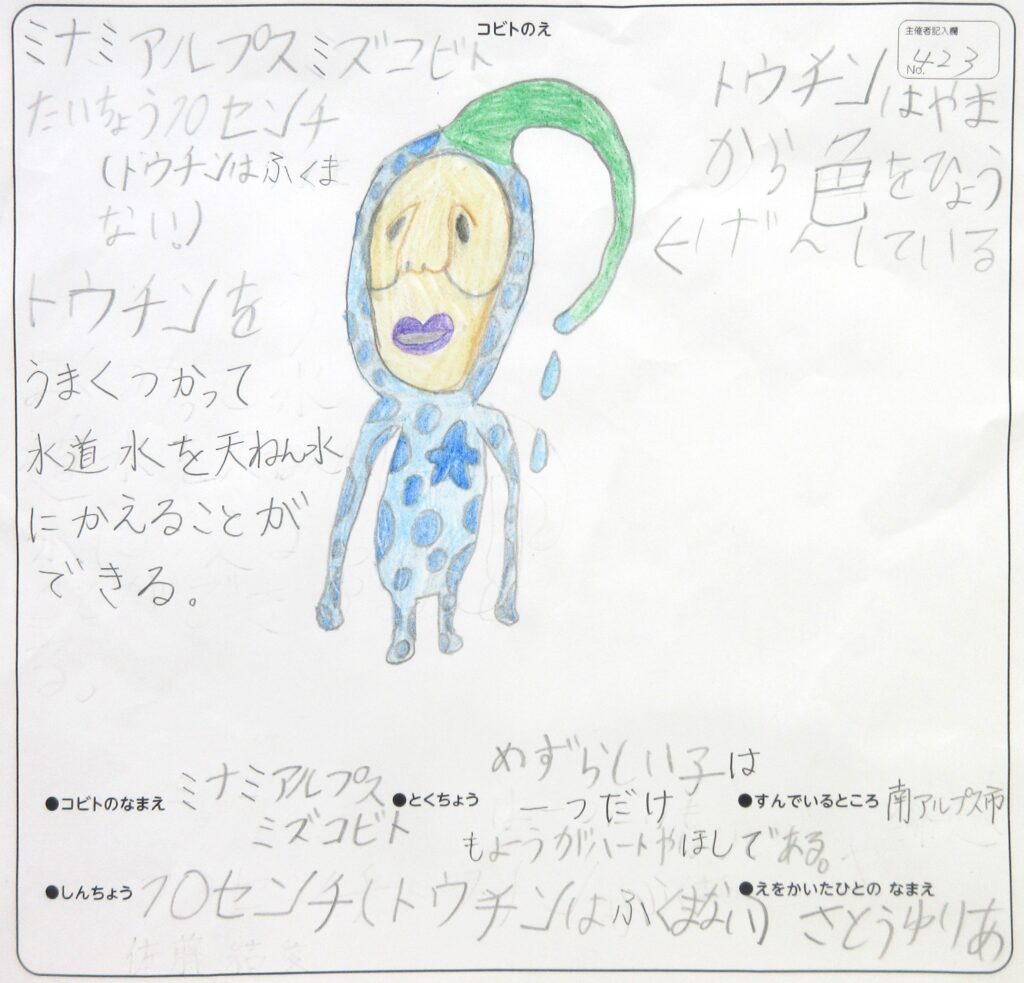 コビトのえ
主催者記入欄
No. 423
ミナミアルプスミズコビト
たいちょう10センチ
(トウチンはふくま
ない!)
トウチンを
うまくつかって
水道水を天ねん水
にかえることが
できる。
トウチンはやま
から色をひょう
くげんしている
●コビトのなまえ ミナミアルプス
ミズコビト
●とくちょう めずらしい子は
一つだけ
もようがハートやほしである。
●すんでいるところ 南アルプス市
●しんちょう 10センチ(トウチンはふくまない)
●えをかいたひとの なまえ
さとうゆりあ